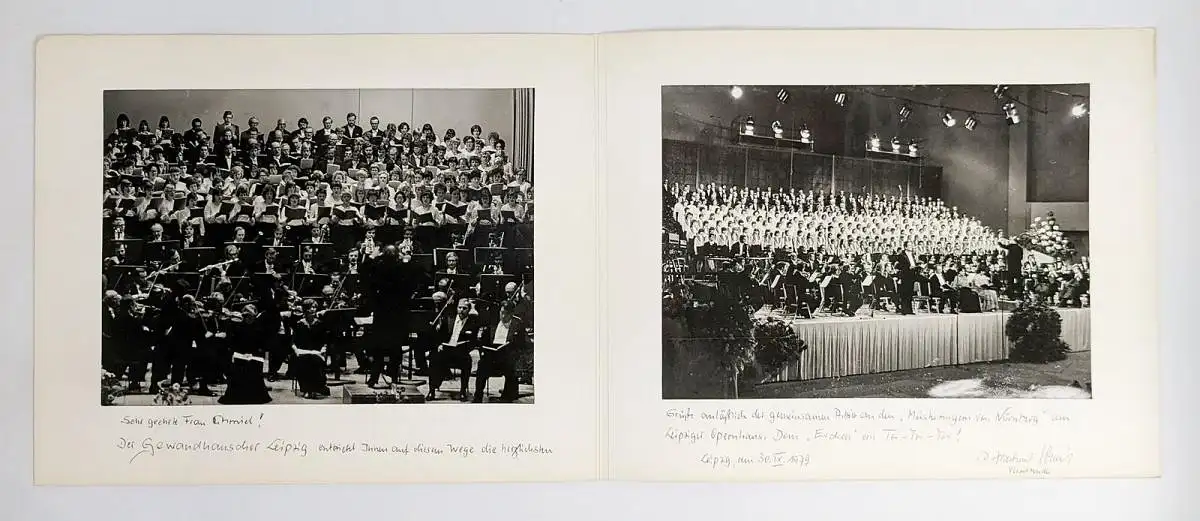 Sehr geehrte Frau
Der Gewandhauschor Leipzig entbietet Ihnen auf diesem Wege die herzlichsten
Grüße anläßlich der gemeinsamen Arbeit an den „Meistersingern von Nürnberg" am
Leipziger Opernhaus. Dem ein Toi-Toi-Toi!
Leipzig, am 30.IX.1979